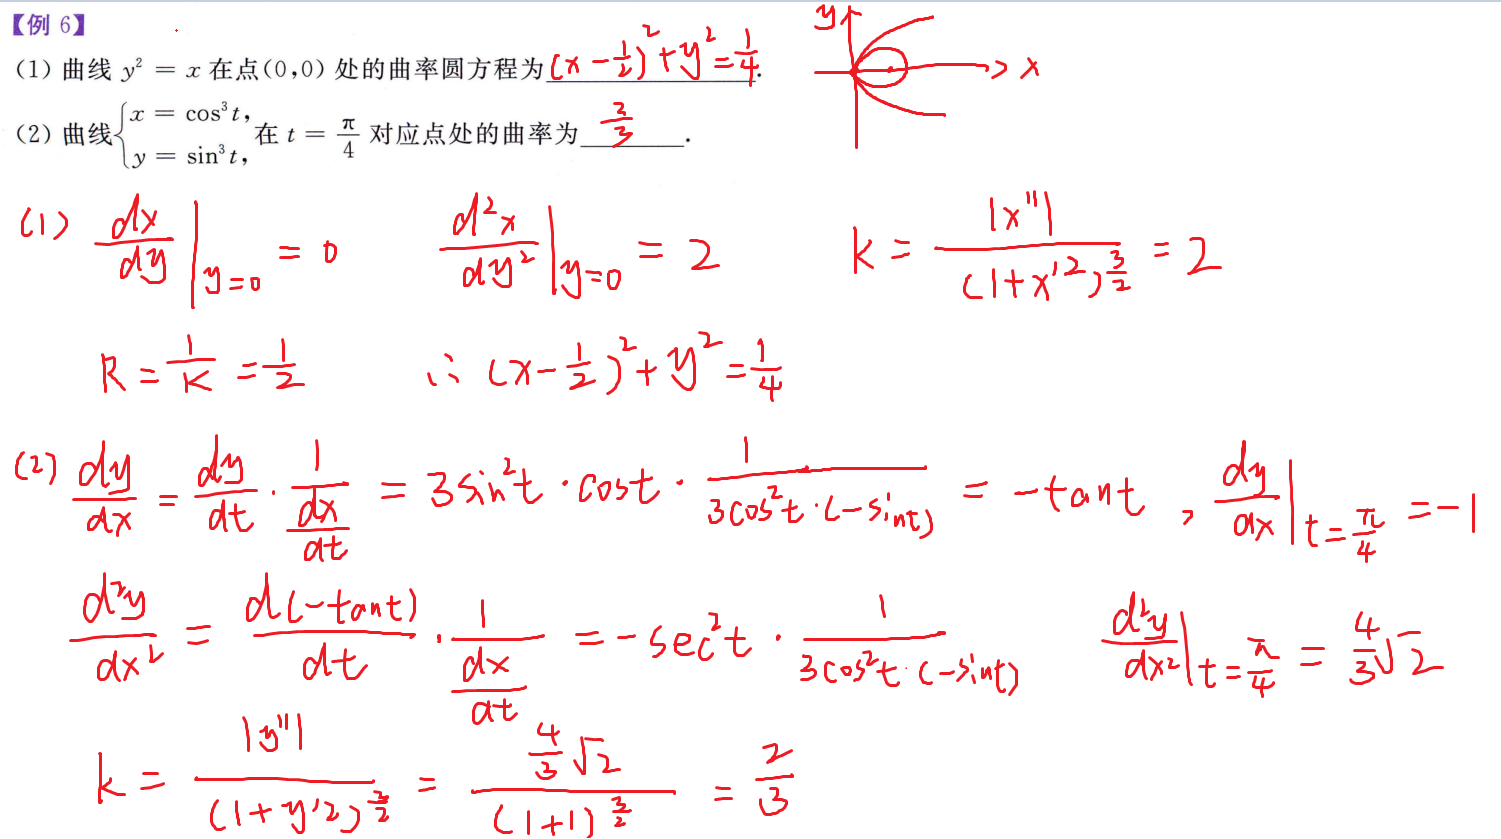 【例 6】
(1) 曲线 y² = x 在点(0,0) 处的曲率圆方程为 (x - 1/2)² + y² = 1/4.
(2) 曲线 { x = cos³t, y = sin³t, 在 t = π/4 对应点处的曲率为 2/3 .
y x
(1) dx/dy |y=0 = 0 d²x/dy² |y=0 = 2 k = |x''| / (1+x'²)^(3/2) = 2
R = 1/K = 1/2 ∴ (x - 1/2)² + y² = 1/4
(2) dy/dx = dy/dt · 1/(dx/dt) = 3sin²t · cost · 1/(3cos²t·(-sint)) = -tant , dy/dx |t=π/4 = -1
d²y/dx² = d(-tant)/dt · 1/(dx/dt) = -sec²t · 1/(3cos²t·(-sint)) d²y/dx² |t=π/4 = 4/3 √2
k = |y''| / (1+y'²)^(3/2) = (4/3 √2) / (1+1)^(3/2) = 2/3